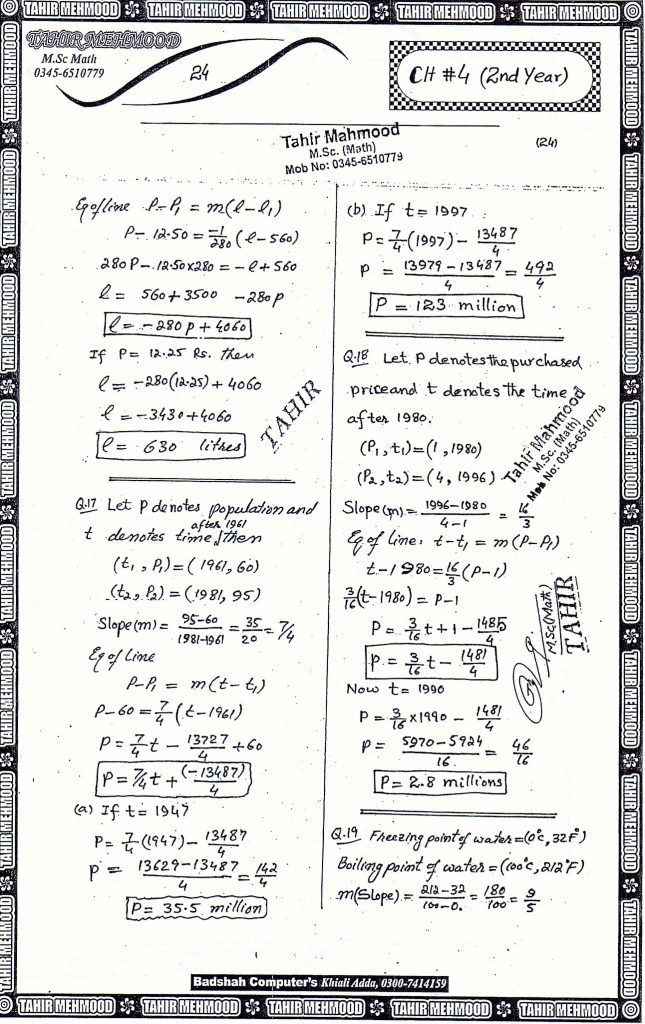 TAHIR MEHMOOD TAHIR MEHMOOD TAHIR MEHMOOD TAHIR MEHMOOD TAHIR MEHMOOD
TAHIR MEHMOOD
M.Sc Math
0345-6510779
24
CH #4 (2nd Year)
Tahir Mahmood
M.Sc. (Math)
Mob No: 0345-6510779
(24)
Eq of line P-P₁ = m(l-l₁)
P- 12.50 = -1/280 (l-560)
280P-12.50x280 = -l+560
l = 560+3500 -280p
l = -280p+4060
If P= 12.25 Rs. then
l = -280(12.25) + 4060
l = -3430+4060
l = 630 litres
TAHIR
Q.17 Let P denotes population and
t denotes time after 1961 then
(t₁, P₁) = (1961, 60)
(t₂, P₂) = (1981, 95)
Slope(m) = 95-60/1981-1961 = 35/20 = 7/4
Eq of Line
P-P₁ = m(t-t₁)
P-60 = 7/4 (t-1961)
P = 7/4 t - 13727/4 +60
P = 7/4 t + (-13487)/4
(a) If t = 1947
P = 7/4 (1947) - 13487/4
P = 13629-13487/4 = 142/4
P = 35.5 million
(b) If t = 1997
P = 7/4 (1997) - 13487/4
P = 13979-13487/4 = 492/4
P = 123 million
Q.18 Let P denotes the purchased
price and t denotes the time
after 1980.
(P₁, t₁) = (1, 1980)
(P₂, t₂) = (4, 1996)
Tahir Mahmood
M.Sc. (Math)
Mob No: 0345-6510779
Slope(m) = 1996-1980/4-1 = 16/3
Eq of Line: t-t₁ = m(P-P₁)
t-1980 = 16/3 (P-1)
3/16 (t-1980) = P-1
P = 3/16 t+1 - 1485/4
P = 3/16 t - 1481/4
M.Sc(Math)
TAHIR
Now t = 1990
P = 3/16 x1990 - 1481/4
P = 5970-5924/16 = 46/16
P = 2.8 millions
Q.19 Freezing point of water = (0°c, 32F°)
Boiling point of water = (100°c, 212°F)
m(Slope) = 212-32/100-0 = 180/100 = 9/5
Badshah Computer's Khiali Adda, 0300-7414159
TAHIR MEHMOOD TAHIR MEHMOOD TAHIR MEHMOOD TAHIR MEHMOOD TAHIR MEHMOOD